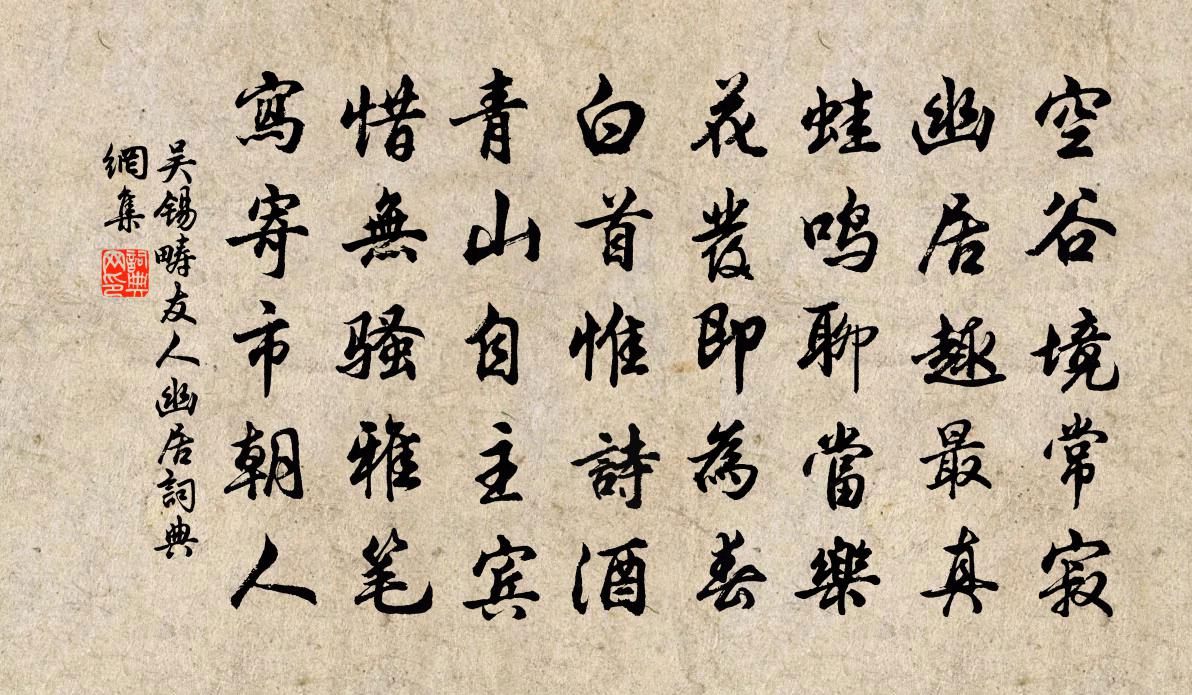 空谷境常寂
幽居趣最真
蛙鸣聊當樂
花發即為春
白首惟詩酒
青山自主宾
惜無骚雅笔
寫寄市朝人
吴锡疇友人幽居詞典
網集
詞典
网印